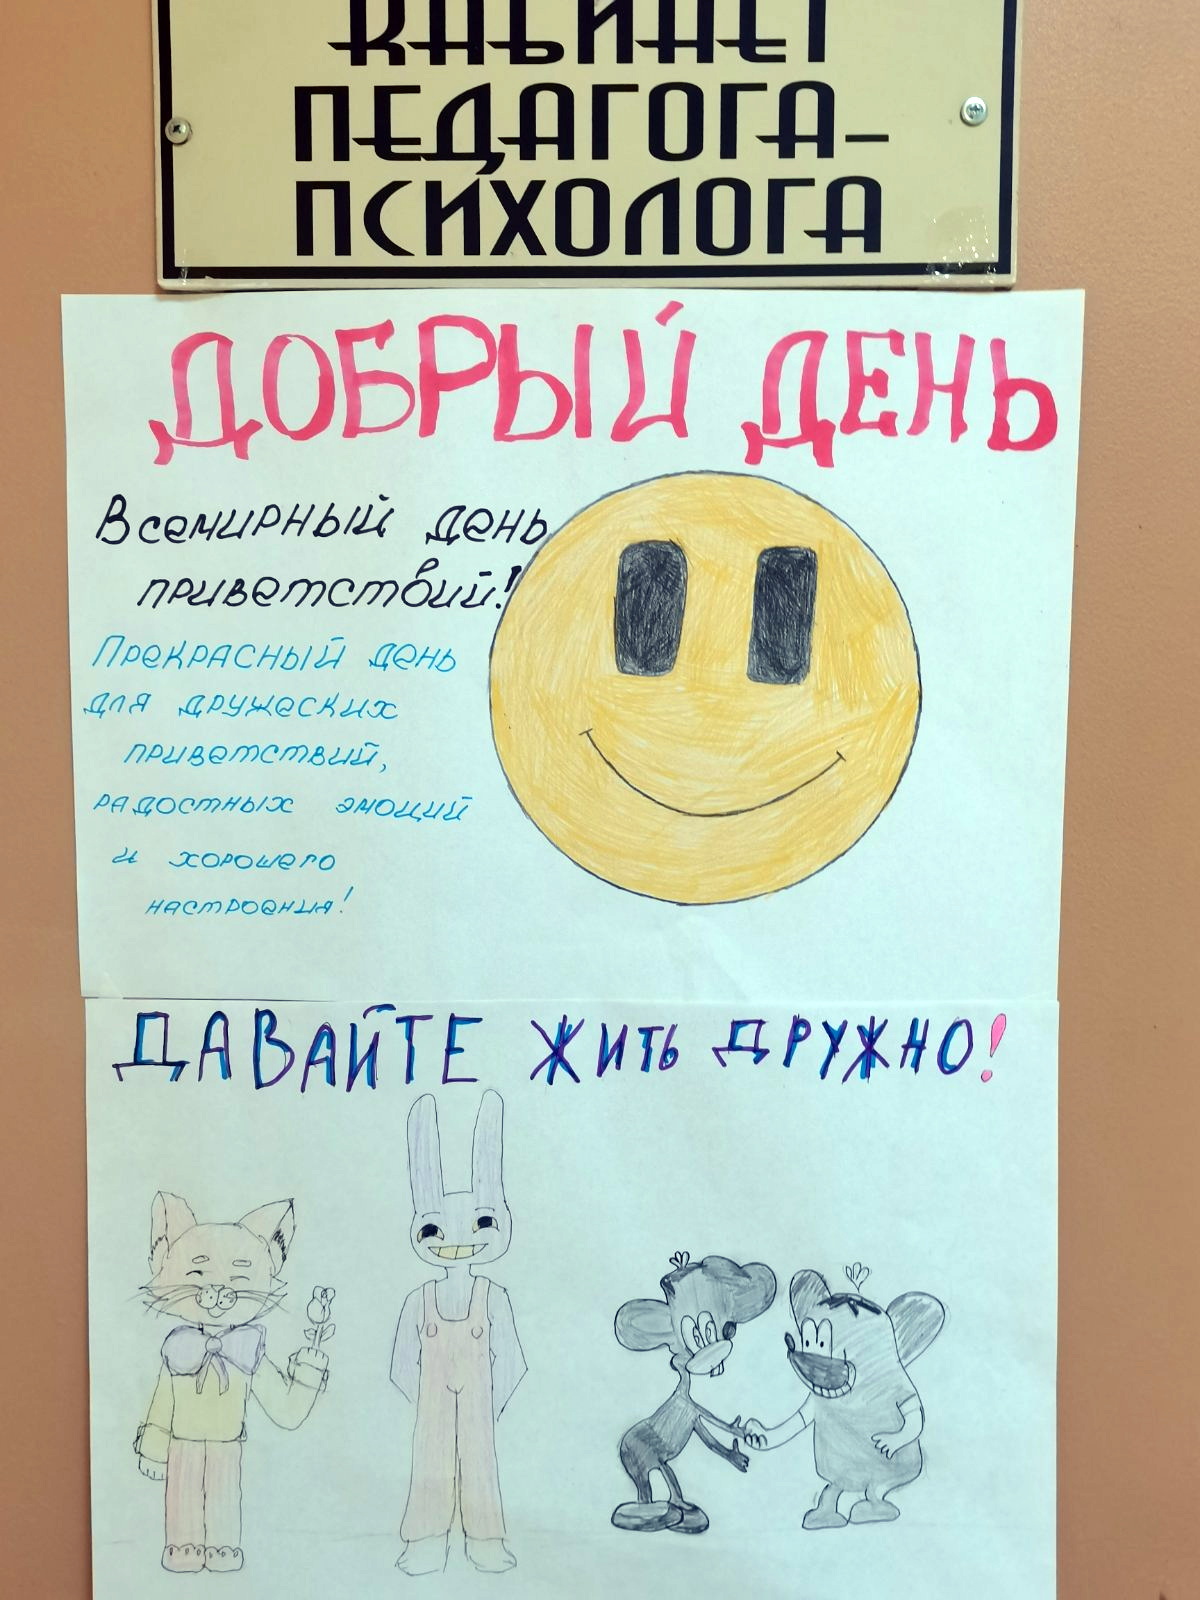 КАБИНЕТ
ПЕДАГОГА-
ПСИХОЛОГА
ДОБРЫЙ ДЕНЬ
Всемирный день
приветствий!
Прекрасный день
для дружеских
приветствий,
радостных эмоций
и хорошего
настроения!
ДАВАЙТЕ ЖИТЬ ДРУЖНО!